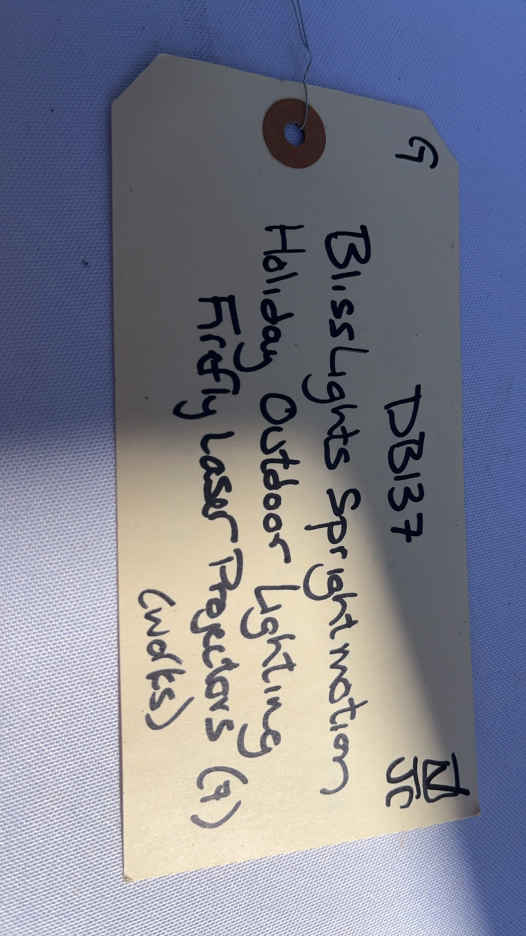 G
DB137
N
JC
BlissLights Spright motion
Holiday Outdoor Lighting
Firefly Laser Projectors (9)
(works)